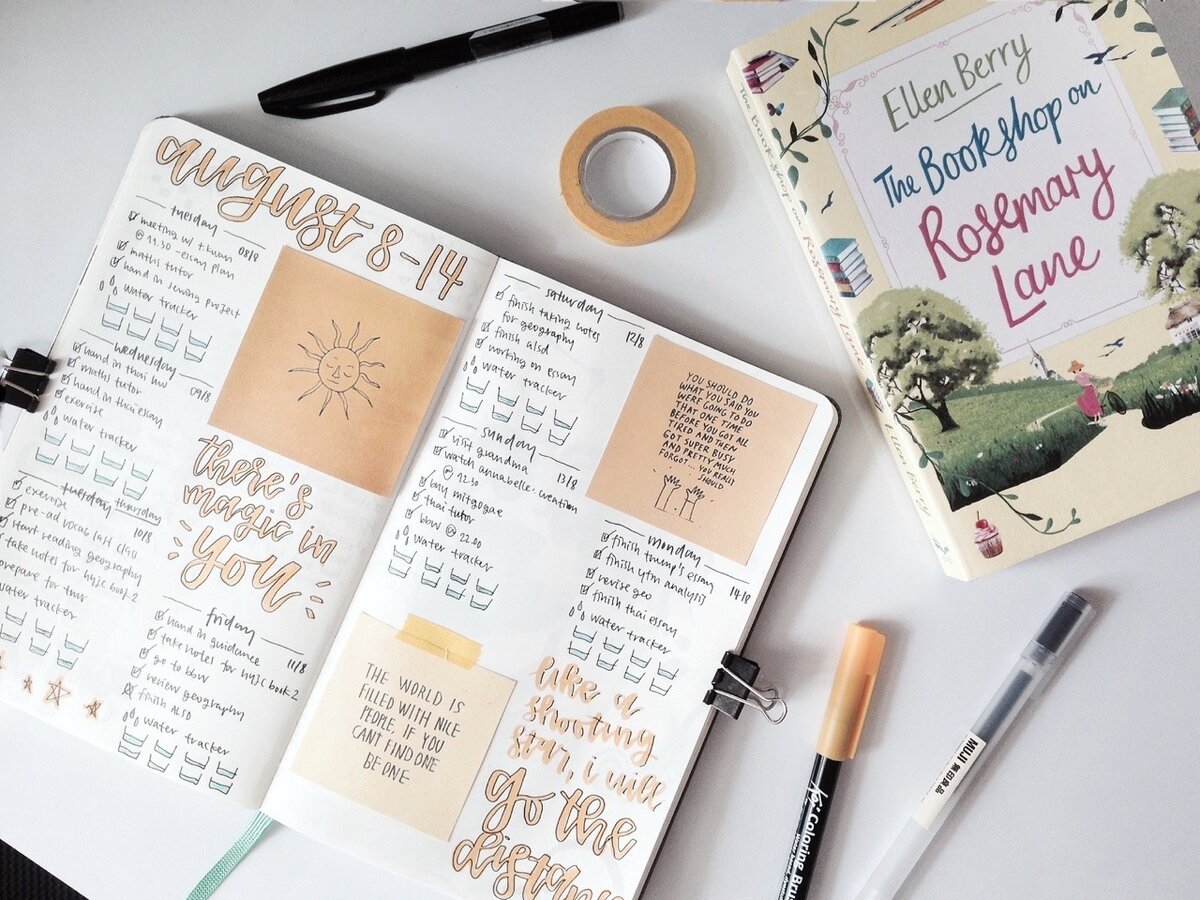 august 8-14
tuesday
08/8
meeting w/ t.kwan
@ 11.30 - essay plan
maths tutor
hand in sewing project
water tracker
wednesday
09/8
hand in thai hw
maths tutor
hand in thai essay
exercise
water tracker
tuesday thursday
10/8
exercise
pre-ad vocal last class
start reading geography
take notes for hyjc book 2
prepare for tmr
water tracker
there's
magic in
you
friday
11/8
hand in guidance
take notes for hyjc book 2
go to bbw
review geography
finish ALSD
water tracker
saturday
12/8
finish taking notes
for geography
finish alsd
working on essay
water tracker
sunday
13/8
visit grandma
watch annabelle: creation
@ 12.30
buy
thai tutor
bbw @
22.00
water tracker
THE WORLD IS
FILLED WITH NICE
PEOPLE, IF YOU
CANT FIND ONE
BE ONE
YOU SHOULD DO
WHAT YOU SAID YOU
WERE GOING TO DO
THAT ONE TIME
BEFORE YOU GOT ALL
TIRED AND THEN
GOT SUPER BUSY
AND PRETTY MUCH
FORGOT... YOU REALLY
SHOULD
monday
14/8
finish trump's essay
finish ytm analysis
revise geo
finish thai essay
water tracker
like a
shooting
star, i will
go the
distan
Ellen Berry
The Bookshop on
Rosemary
Lane
The Bookshop on Rosemary Lane
Ellen Berry
Koi Coloring Bru
MUJI 無印良品